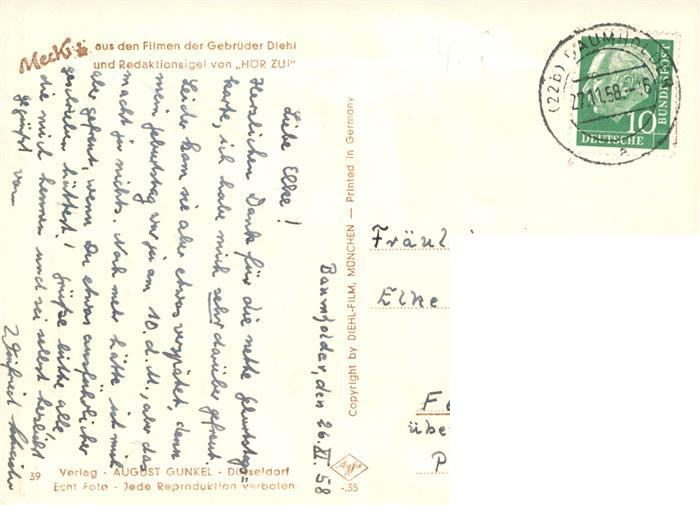 Mecki aus den Filmen der Gebrüder Diehl
und Redaktionsigel von „HÖR ZU!"
Liebe Elke!
Herzlichen Dank für die nette Geburtstags=
karte, ich habe mich sehr darüber gefreut.
Leider kam sie aber etwas verspätet, denn
mein Geburtstag war ja am 10. d. M., aber das
macht ja nichts. Noch mehr hätte ich mich
aber gefreut, wenn Du etwas ausführlicher
geschrieben hättest! Grüße bitte alle,
die mich kennen und sei selbst herzlichst
gegrüßt von
Winfried
Baumholder, den 26. XI. 58
39 Verlag - AUGUST GUNKEL - Düsseldorf
Echt Foto - Jede Reproduktion verboten
Copyright by DIEHL-FILM, MÜNCHEN — Printed in Germany
Agfa
-.35
(22b) BAUMHOLDER
27.11.58.-16
a
10
DEUTSCHE
BUNDESPOST
Fräul
Elke
F
übe
P